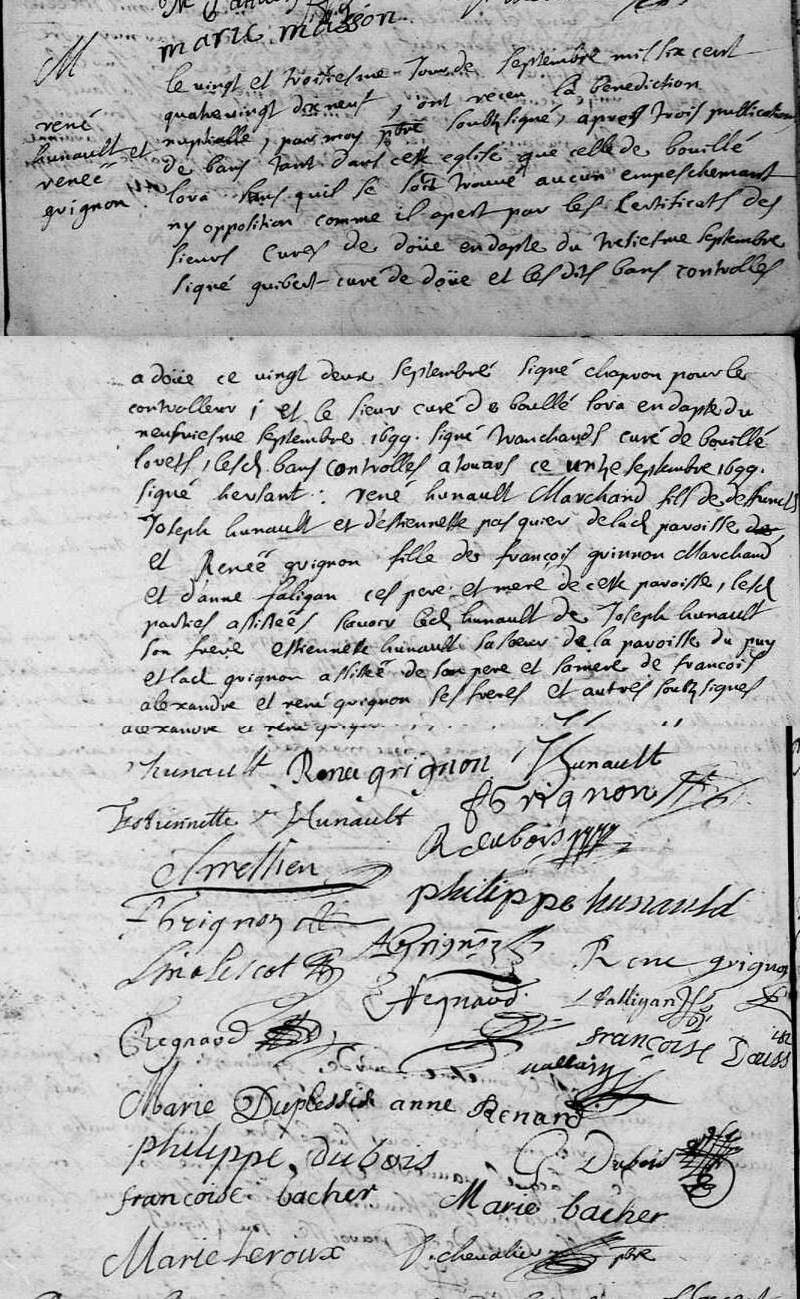 marie masson
M
rené
hunault et
renee
grignon
le vingt et troisiesme Jour de Septembre mil six cent
quatre vingt dix neuf, ont receu la benediction
nuptialle, par moy pbre soubz signé, apres trois publication
de bans tant dans cette eglise que celle de bouillé
lora sans quil se soit trouué aucun empeschemant
ny opposition comme il apert par les Certificats des
sieurs Cures de doüe en dapte du tresiesme septembre
signé guibert curé de doüe et les dits bans controlles
a doüe ce vingt deux septembre signé chapron pour le
controlleur ; et le sieur curé de boullé lora en dapte du
neufuiesme septembre 1699. signé tranchands curé de bouillé
lorets, lesd bans controlles a touars ce unze septembre 1699.
signé hersant. rené hunault Marchand fils de defuncts
Joseph hunault et d'estiennette pasquier de lad paroisse
et Reneé grignon fille de françois grinnon Marchand
et d'anne faligan ces pere et mere de cette paroisse, lesd
parties assistées scauoir led hunault de Joseph hunault
son frere estiennette hunault sa soeur de la paroisse du puy
et lad grignon assisteé de son pere et sa mere de francois
alexandre et rené grignon ses freres et autres soubz signes
alexandre et rené grignon
hunault Renee grignon J hunault
Estiennette hunault f Grignon
R dubois
philippe hunauld
f Grignon
A Grignon Rene grignon
Regnaud falligan
Regnaud francoise
uallain
Marie Duplessis anne Renard
philippe dubois G Dubois
francoise bacher Marie bacher
Marie Leroux D. cheualier pbre